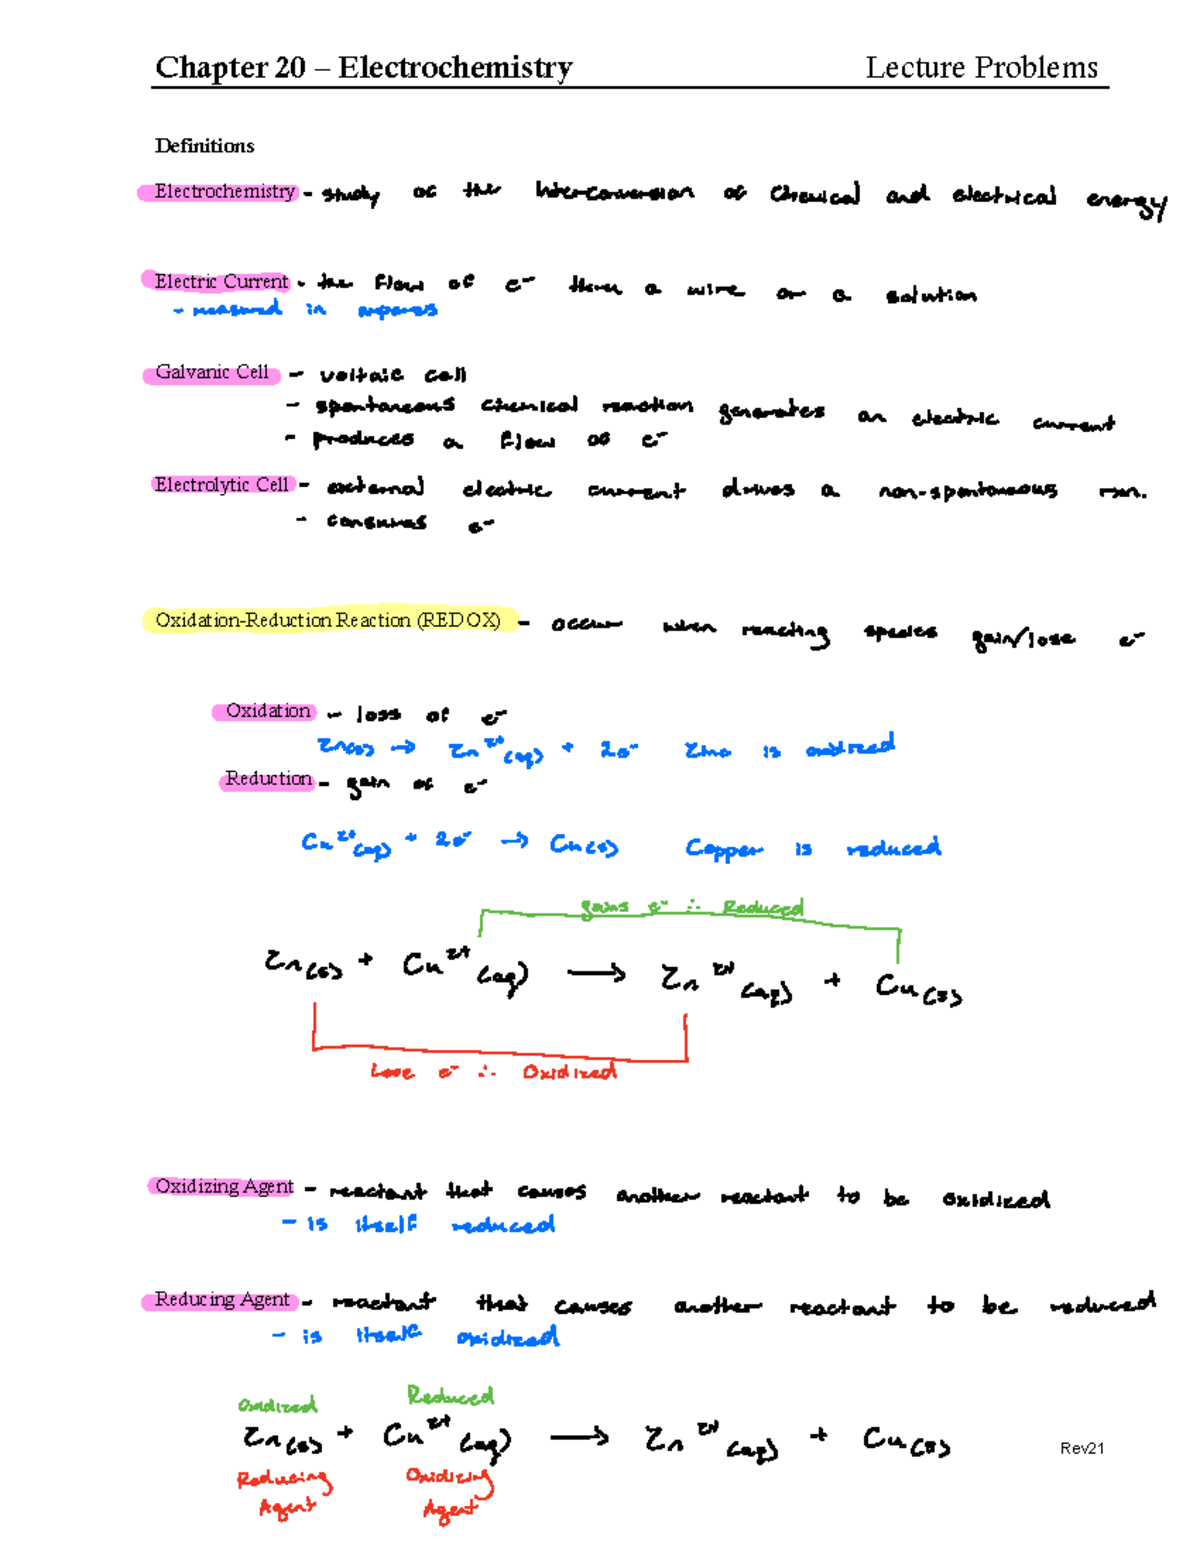 Chapter 20 – Electrochemistry Lecture Problems
Definitions
Electrochemistry - study of the interconversion of chemical and electrical energy
Electric Current - the flow of e⁻ thru a wire or a solution
- measured in amperes
Galvanic Cell - voltaic cell
- spontaneous chemical reaction generates an electric current
- produces a flow of e⁻
Electrolytic Cell - external electric current drives a non-spontaneous rxn.
- consumes e⁻
Oxidation-Reduction Reaction (REDOX) - occur when reacting species gain/lose e⁻
Oxidation - loss of e⁻
Zn(s) → Zn²⁺(aq) + 2e⁻ Zinc is oxidized
Reduction - gain of e⁻
Cu²⁺(aq) + 2e⁻ → Cu(s) Copper is reduced
gains e⁻ ∴ Reduced
Zn(s) + Cu²⁺(aq) → Zn²⁺(aq) + Cu(s)
Lose e⁻ ∴ Oxidized
Oxidizing Agent - reactant that causes another reactant to be oxidized
- is itself reduced
Reducing Agent - reactant that causes another reactant to be reduced
- is itself oxidized
Oxidized Reduced
Zn(s) + Cu²⁺(aq) → Zn²⁺(aq) + Cu(s)
Rev21
Reducing Oxidizing
Agent Agent